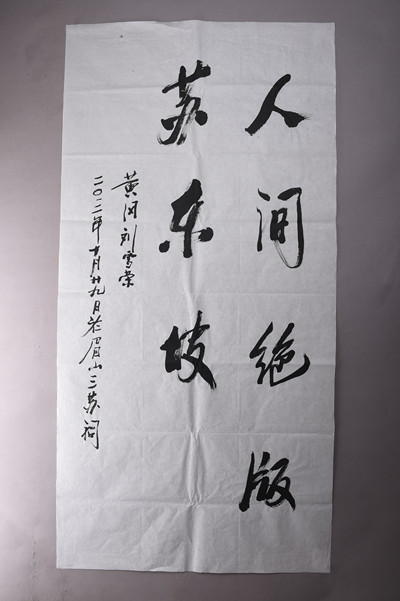 人间绝版
苏东坡
黄冈刘雪荣
二〇一二年十月廿九日于眉山三苏祠